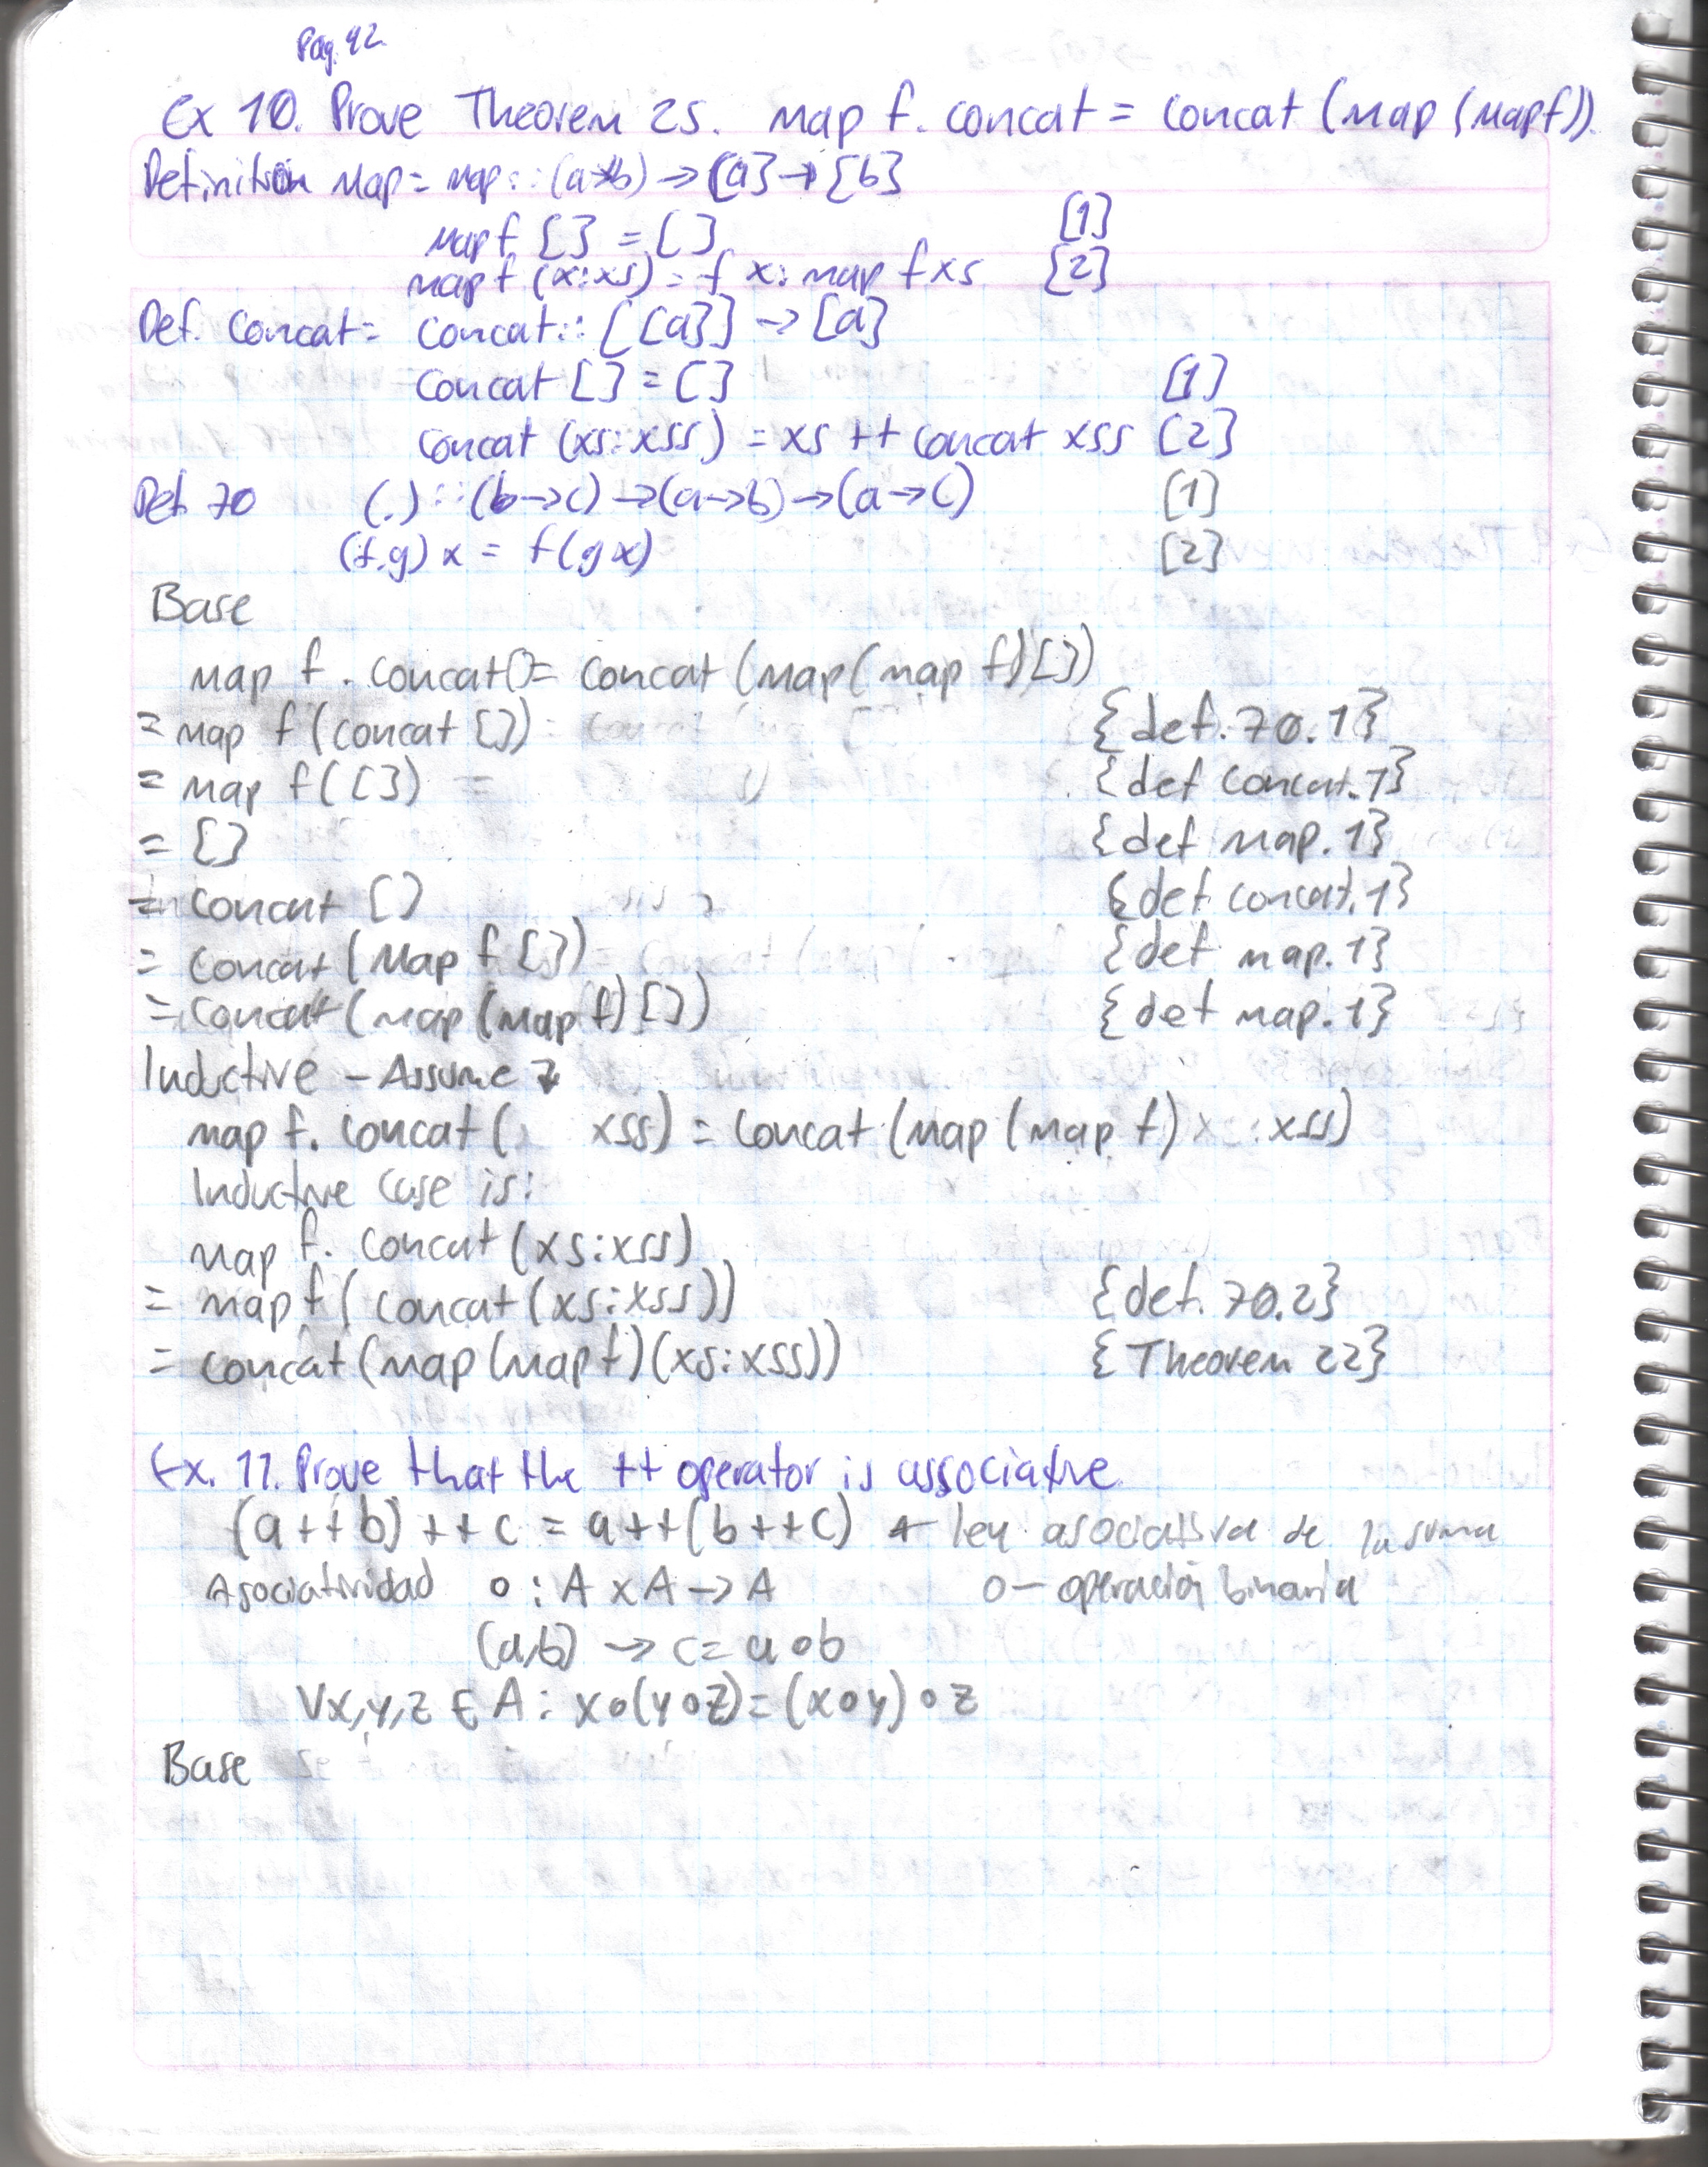 Pag. 42
Ex 10. Prove Theorem 25. map f. concat = concat (map (map f)).
Definition map = map :: (a→b) → [a] → [b]
map f [] = [] [1]
map f (x:xs) = f x : map f xs [2]
Def. Concat = concat :: [[a]] → [a]
concat [] = [] [1]
concat (xs:xss) = xs ++ concat xss [2]
Def. 70 (.) :: (b→c) → (a→b) → (a→c) [1]
(f.g) x = f(g x) [2]
Base
map f . concat[] = concat (map (map f) [])
= map f (concat []) = {def. 70.1}
= map f([]) = {def concat.1}
= [] {def map.1}
= concat [] {def concat.1}
= concat (map f []) {def map.1}
= concat (map (map f) []) {def map.1}
Inductive - Assume ↓
map f. concat ( xss) = concat (map (map f) : xss)
Inductive case is:
map f. concat (xs:xss)
= map f (concat (xs:xss)) {def. 70.2}
= concat (map (map f) (xs:xss)) {Theorem 22}
Ex. 11. Prove that the ++ operator is associative
(a++b) ++ c = a++(b++c) ← ley asociativa de la suma
Asociatividad o : A x A → A o - operación binaria
(a,b) → c = a o b
∀x,y,z ∈ A : x o (y o z) = (x o y) o z
Base